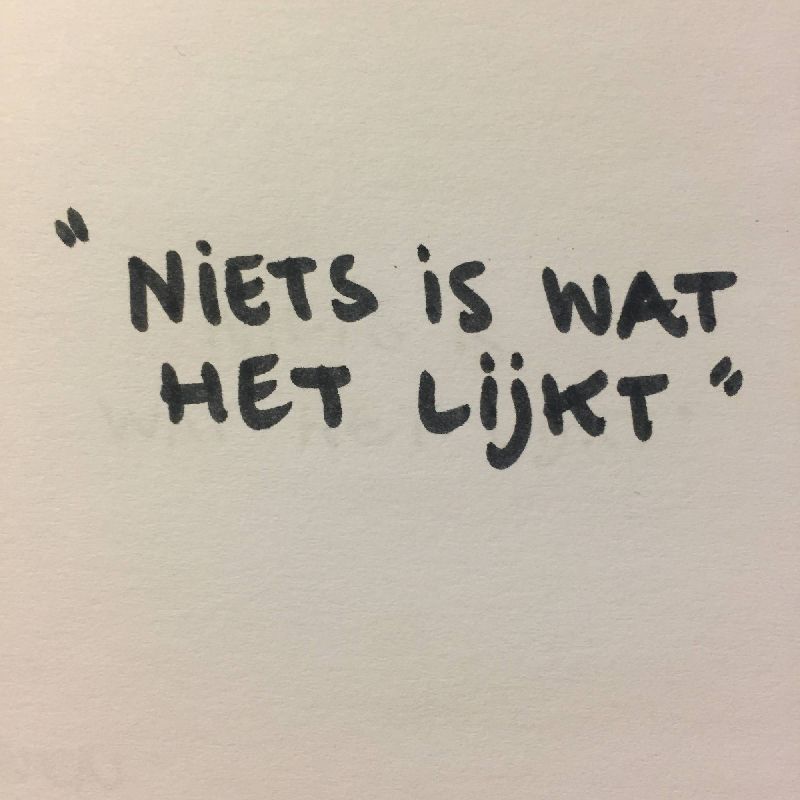 "NiETS iS WAT
HET LijKT"